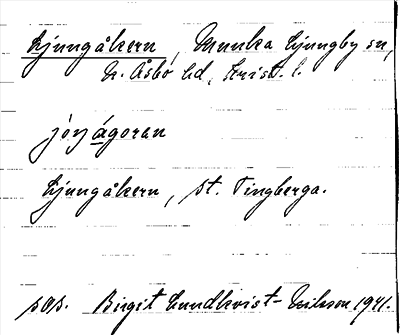 Ljungåkern, Munka Ljungby sn,
N. Åsbo hd, Krist. l.
jóŋágoran
Ljungåkern, st. Tingberga.
sas. Birgit Lundkvist-Nilsson 1941.